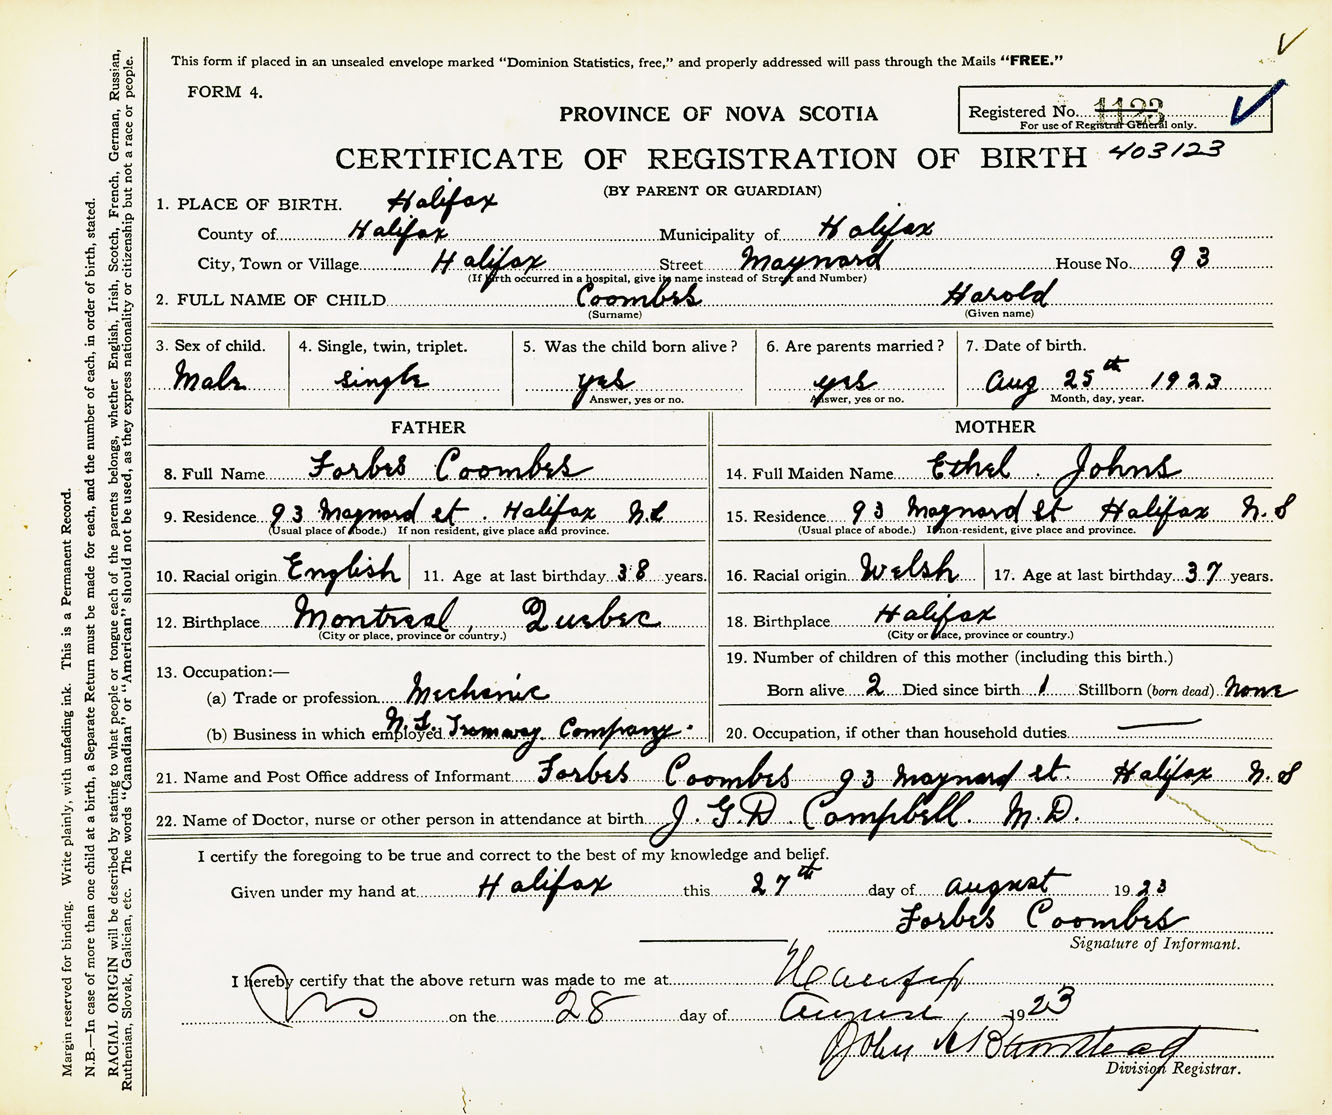 This form if placed in an unsealed envelope marked "Dominion Statistics, free," and properly addressed will pass through the Mails "FREE."
FORM 4.
PROVINCE OF NOVA SCOTIA
Registered No. 1123
For use of Registrar General only.
CERTIFICATE OF REGISTRATION OF BIRTH 403123
(BY PARENT OR GUARDIAN)
1. PLACE OF BIRTH. Halifax
County of Halifax Municipality of Halifax
City, Town or Village Halifax Street Maynard House No. 93
(If birth occurred in a hospital, give its name instead of Street and Number)
2. FULL NAME OF CHILD Coombes Harold
(Surname) (Given name)
3. Sex of child. 4. Single, twin, triplet. 5. Was the child born alive? 6. Are parents married? 7. Date of birth.
Male single yes yes Aug 25th 1923
Answer, yes or no. Answer, yes or no. Month, day, year.
FATHER MOTHER
8. Full Name Forbes Coombes 14. Full Maiden Name Ethel Johns
9. Residence 93 Maynard st. Halifax N.S 15. Residence 93 Maynard st Halifax N.S
(Usual place of abode.) If non resident, give place and province. (Usual place of abode.) If non-resident, give place and province.
10. Racial origin English 11. Age at last birthday 38 years. 16. Racial origin Welsh 17. Age at last birthday 37 years.
12. Birthplace Montreal, Quebec 18. Birthplace Halifax
(City or place, province or country.) (City or place, province or country.)
13. Occupation:— 19. Number of children of this mother (including this birth.)
(a) Trade or profession Mechanic Born alive 2 Died since birth 1 Stillborn (born dead) none
(b) Business in which employed N.S. Tramway Company. 20. Occupation, if other than household duties
21. Name and Post Office address of Informant Forbes Coombes 93 Maynard st. Halifax N.S
22. Name of Doctor, nurse or other person in attendance at birth J.G.D. Campbell. M.D.
I certify the foregoing to be true and correct to the best of my knowledge and belief.
Given under my hand at Halifax this 27th day of august 1923
Forbes Coombes
Signature of Informant.
I hereby certify that the above return was made to me at Halifax
on the 28 day of August, 1923
John Barnstead
Division Registrar.
Margin reserved for binding. Write plainly, with unfading ink. This is a Permanent Record.
N.B.—In case of more than one child at a birth, a Separate Return must be made for each, and the number of each, in order of birth, stated.
RACIAL ORIGIN will be described by stating to what people or tongue each of the parents belongs, whether English, Irish, Scotch, French, German, Russian,
Ruthenian, Slovak, Galician, etc. The words "Canadian" or "American" should not be used, as they express nationality or citizenship but not a race or people.